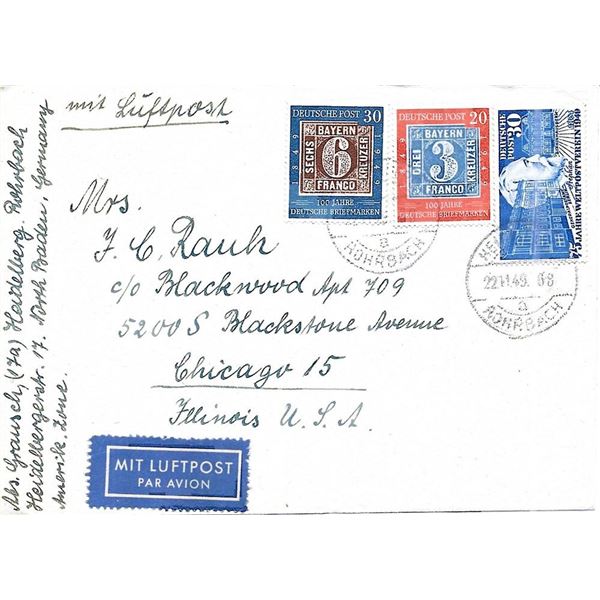 mit Luftpost
Abs. Grausch, (17a) Heidelberg-Rohrbach
Heidelbergerstr. 17. North Baden, Germany
Amerik. Zone.
DEUTSCHE POST 30
1849
BAYERN
SECHS
6
KREUZER
FRANCO
1949
100 JAHRE
DEUTSCHE BRIEFMARKEN
DEUTSCHE POST 20
1849
BAYERN
DREI
3
KREUZER
FRANCO
1949
100 JAHRE
DEUTSCHE BRIEFMARKEN
DEUTSCHE
POST 30
75 JAHRE WELTPOSTVEREIN 1949
a
ROHRBACH
22.11.49. 08
a
ROHRBACH
Mrs.
F. C. Rauh
c/o Blackwood Apt 709
5200 S Blackstone Avenue
Chicago 15
Illinois U. S. A.
MIT LUFTPOST
PAR AVION